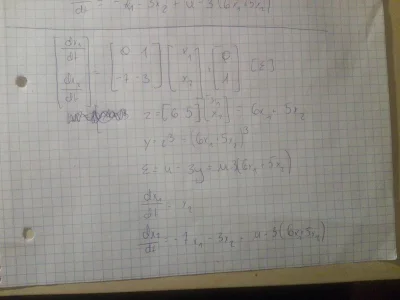 dx₂/dt = -7x₁ - 3x₂ + u - 3(6x₁+5x₂)
[dx₁/dt; dx₂/dt] = [0 1; -7 -3] [x₁; x₂] + [0; 1] [ε]
z = [6 5] [x₁; x₂] = 6x₁ 5x₂
y = z³ = (6x₁ 5x₂)³
ε = u - 3y = u - 3(6x₁+5x₂)
dx₁/dt = x₂
dx₂/dt = -7x₁ - 3x₂ - u - 3(6x₁+5x₂)